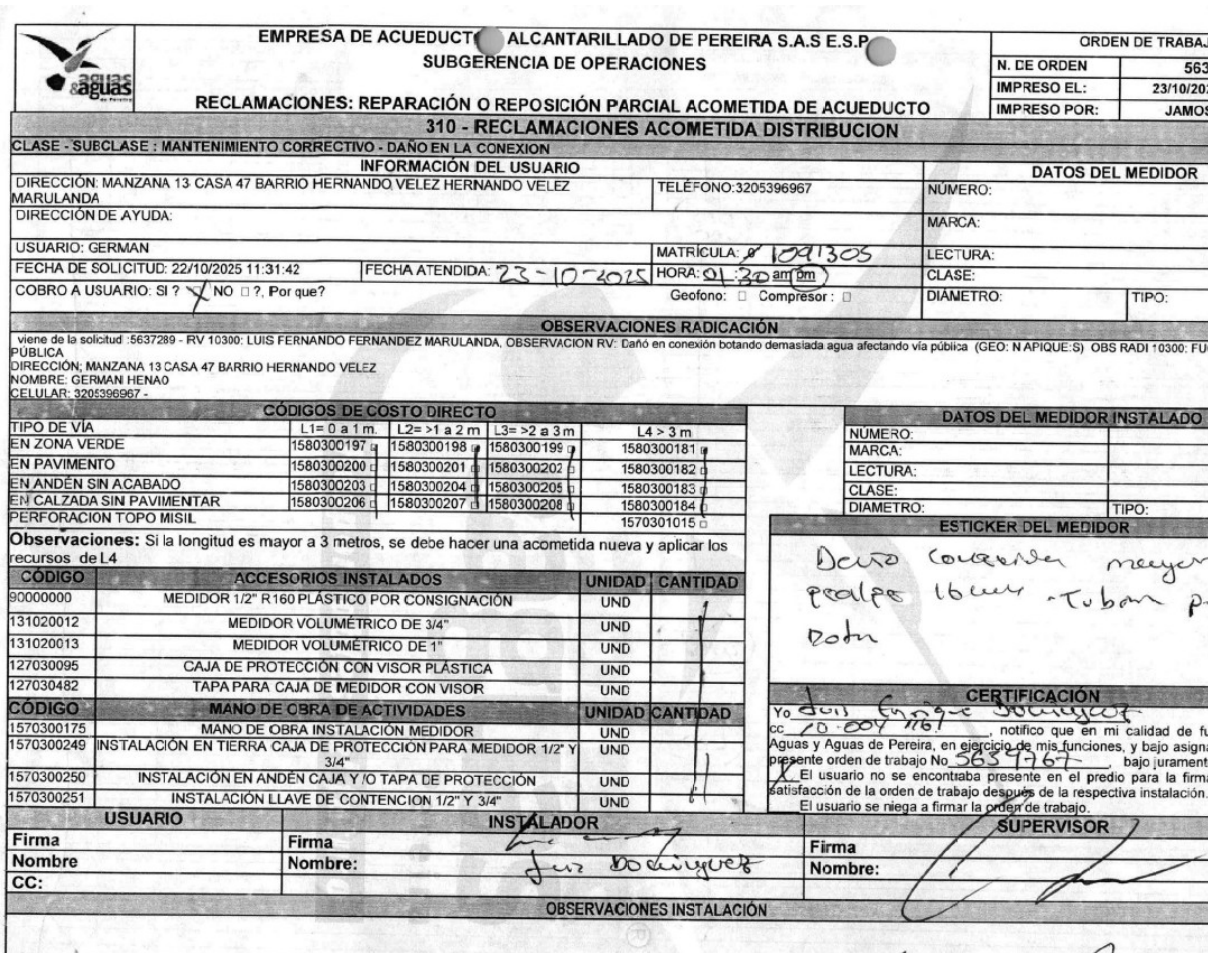 EMPRESA DE ACUEDUCTO ALCANTARILLADO DE PEREIRA S.A.S E.S.P
SUBGERENCIA DE OPERACIONES
RECLAMACIONES: REPARACIÓN O REPOSICIÓN PARCIAL ACOMETIDA DE ACUEDUCTO
aguas
&aguas
de Pereira
ORDEN DE TRABAJ
N. DE ORDEN 563
IMPRESO EL: 23/10/202
IMPRESO POR: JAMOS
310 - RECLAMACIONES ACOMETIDA DISTRIBUCION
CLASE - SUBCLASE : MANTENIMIENTO CORRECTIVO - DAÑO EN LA CONEXION
INFORMACIÓN DEL USUARIO
DATOS DEL MEDIDOR
DIRECCIÓN: MANZANA 13 CASA 47 BARRIO HERNANDO VELEZ HERNANDO VELEZ
MARULANDA
TELÉFONO:3205396967
NÚMERO:
DIRECCIÓN DE AYUDA:
MARCA:
USUARIO: GERMAN
MATRÍCULA: 1091305
LECTURA:
FECHA DE SOLICITUD: 22/10/2025 11:31:42
FECHA ATENDIDA: 23-10-2025
HORA: 01:30 am pm
CLASE:
COBRO A USUARIO: SI ? NO ?, Por que?
Geofono: Compresor :
DIÁMETRO: TIPO:
OBSERVACIONES RADICACIÓN
viene de la solicitud :5637289 - RV 10300: LUIS FERNANDO FERNANDEZ MARULANDA, OBSERVACION RV: Dañó en conexión botando demasiada agua afectando vía pública (GEO: N APIQUE:S) OBS RADI 10300: FU
PÚBLICA
DIRECCIÓN; MANZANA 13 CASA 47 BARRIO HERNANDO VELEZ
NOMBRE: GERMAN HENAO
CELULAR: 3205396967 -
CÓDIGOS DE COSTO DIRECTO
TIPO DE VÍA L1= 0 a 1 m. L2= >1 a 2 m L3= >2 a 3 m L4 > 3 m
EN ZONA VERDE 1580300197 1580300198 1580300199 1580300181
EN PAVIMENTO 1580300200 1580300201 1580300202 1580300182
EN ANDÉN SIN ACABADO 1580300203 1580300204 1580300205 1580300183
EN CALZADA SIN PAVIMENTAR 1580300206 1580300207 1580300208 1580300184
PERFORACION TOPO MISIL 1570301015
Observaciones: Si la longitud es mayor a 3 metros, se debe hacer una acometida nueva y aplicar los
recursos de L4
DATOS DEL MEDIDOR INSTALADO
NÚMERO:
MARCA:
LECTURA:
CLASE:
DIAMETRO: TIPO:
ESTICKER DEL MEDIDOR
Daño
rota
CÓDIGO ACCESORIOS INSTALADOS UNIDAD CANTIDAD
90000000 MEDIDOR 1/2" R160 PLÁSTICO POR CONSIGNACIÓN UND
131020012 MEDIDOR VOLUMÉTRICO DE 3/4" UND
131020013 MEDIDOR VOLUMÉTRICO DE 1" UND
127030095 CAJA DE PROTECCIÓN CON VISOR PLÁSTICA UND
127030482 TAPA PARA CAJA DE MEDIDOR CON VISOR UND
CÓDIGO MANO DE OBRA DE ACTIVIDADES UNIDAD CANTIDAD
1570300175 MANO DE OBRA INSTALACIÓN MEDIDOR UND
1570300249 INSTALACIÓN EN TIERRA CAJA DE PROTECCIÓN PARA MEDIDOR 1/2" Y
3/4" UND
1570300250 INSTALACIÓN EN ANDÉN CAJA Y /O TAPA DE PROTECCIÓN UND
1570300251 INSTALACIÓN LLAVE DE CONTENCION 1/2" Y 3/4" UND
CERTIFICACIÓN
Yo Luis Enrique Dominguez
cc , notifico que en mi calidad de fu
Aguas y Aguas de Pereira, en ejercicio de mis funciones, y bajo asigna
presente orden de trabajo No 5639767 , bajo jurament
X El usuario no se encontraba presente en el predio para la firma
satisfacción de la orden de trabajo después de la respectiva instalación.
El usuario se niega a firmar la orden de trabajo.
USUARIO INSTALADOR SUPERVISOR
Firma Firma Firma
Nombre Nombre: Luis Dominguez Nombre:
CC:
OBSERVACIONES INSTALACIÓN